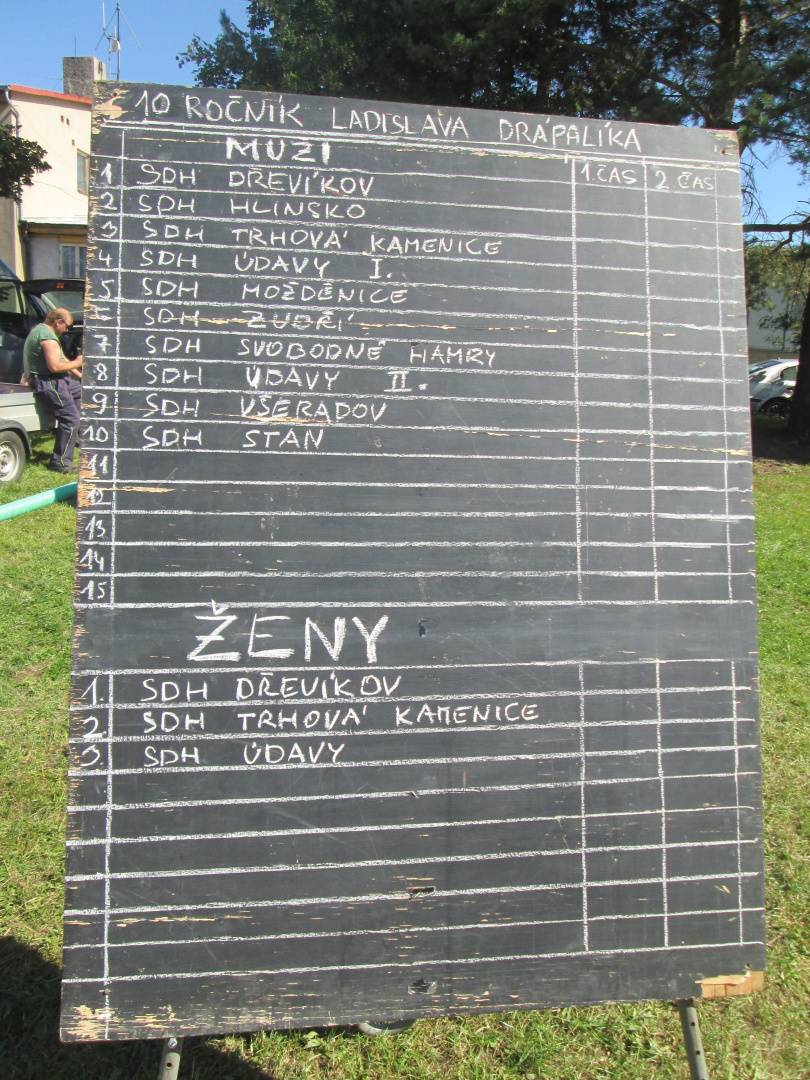 10 ROČNÍK LADISLAVA DRÁPALÍKA
MUŽI 1.ČAS 2.ČAS
1 SDH DŘEVÍKOV
2 SDH HLINSKO
3 SDH TRHOVÁ KAMENICE
4 SDH ÚDAVY I.
5 SDH MOŽDĚNICE
6 SDH ZUBŘÍ
7 SDH SVOBODNÉ HAMRY
8 SDH ÚDAVY II.
9 SDH VŠERADOV
10 SDH STAN
11
12
13
14
15
ŽENY
1. SDH DŘEVÍKOV
2 SDH TRHOVÁ KAMENICE
3. SDH ÚDAVY